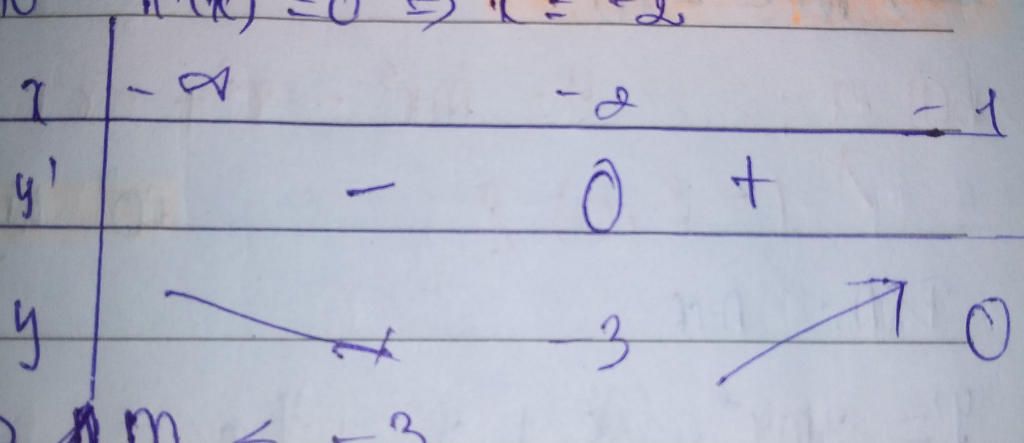 h'(x) = 0 => x = -2
x -∞ -2 -1
y' - 0 +
y -3 0
m < -3